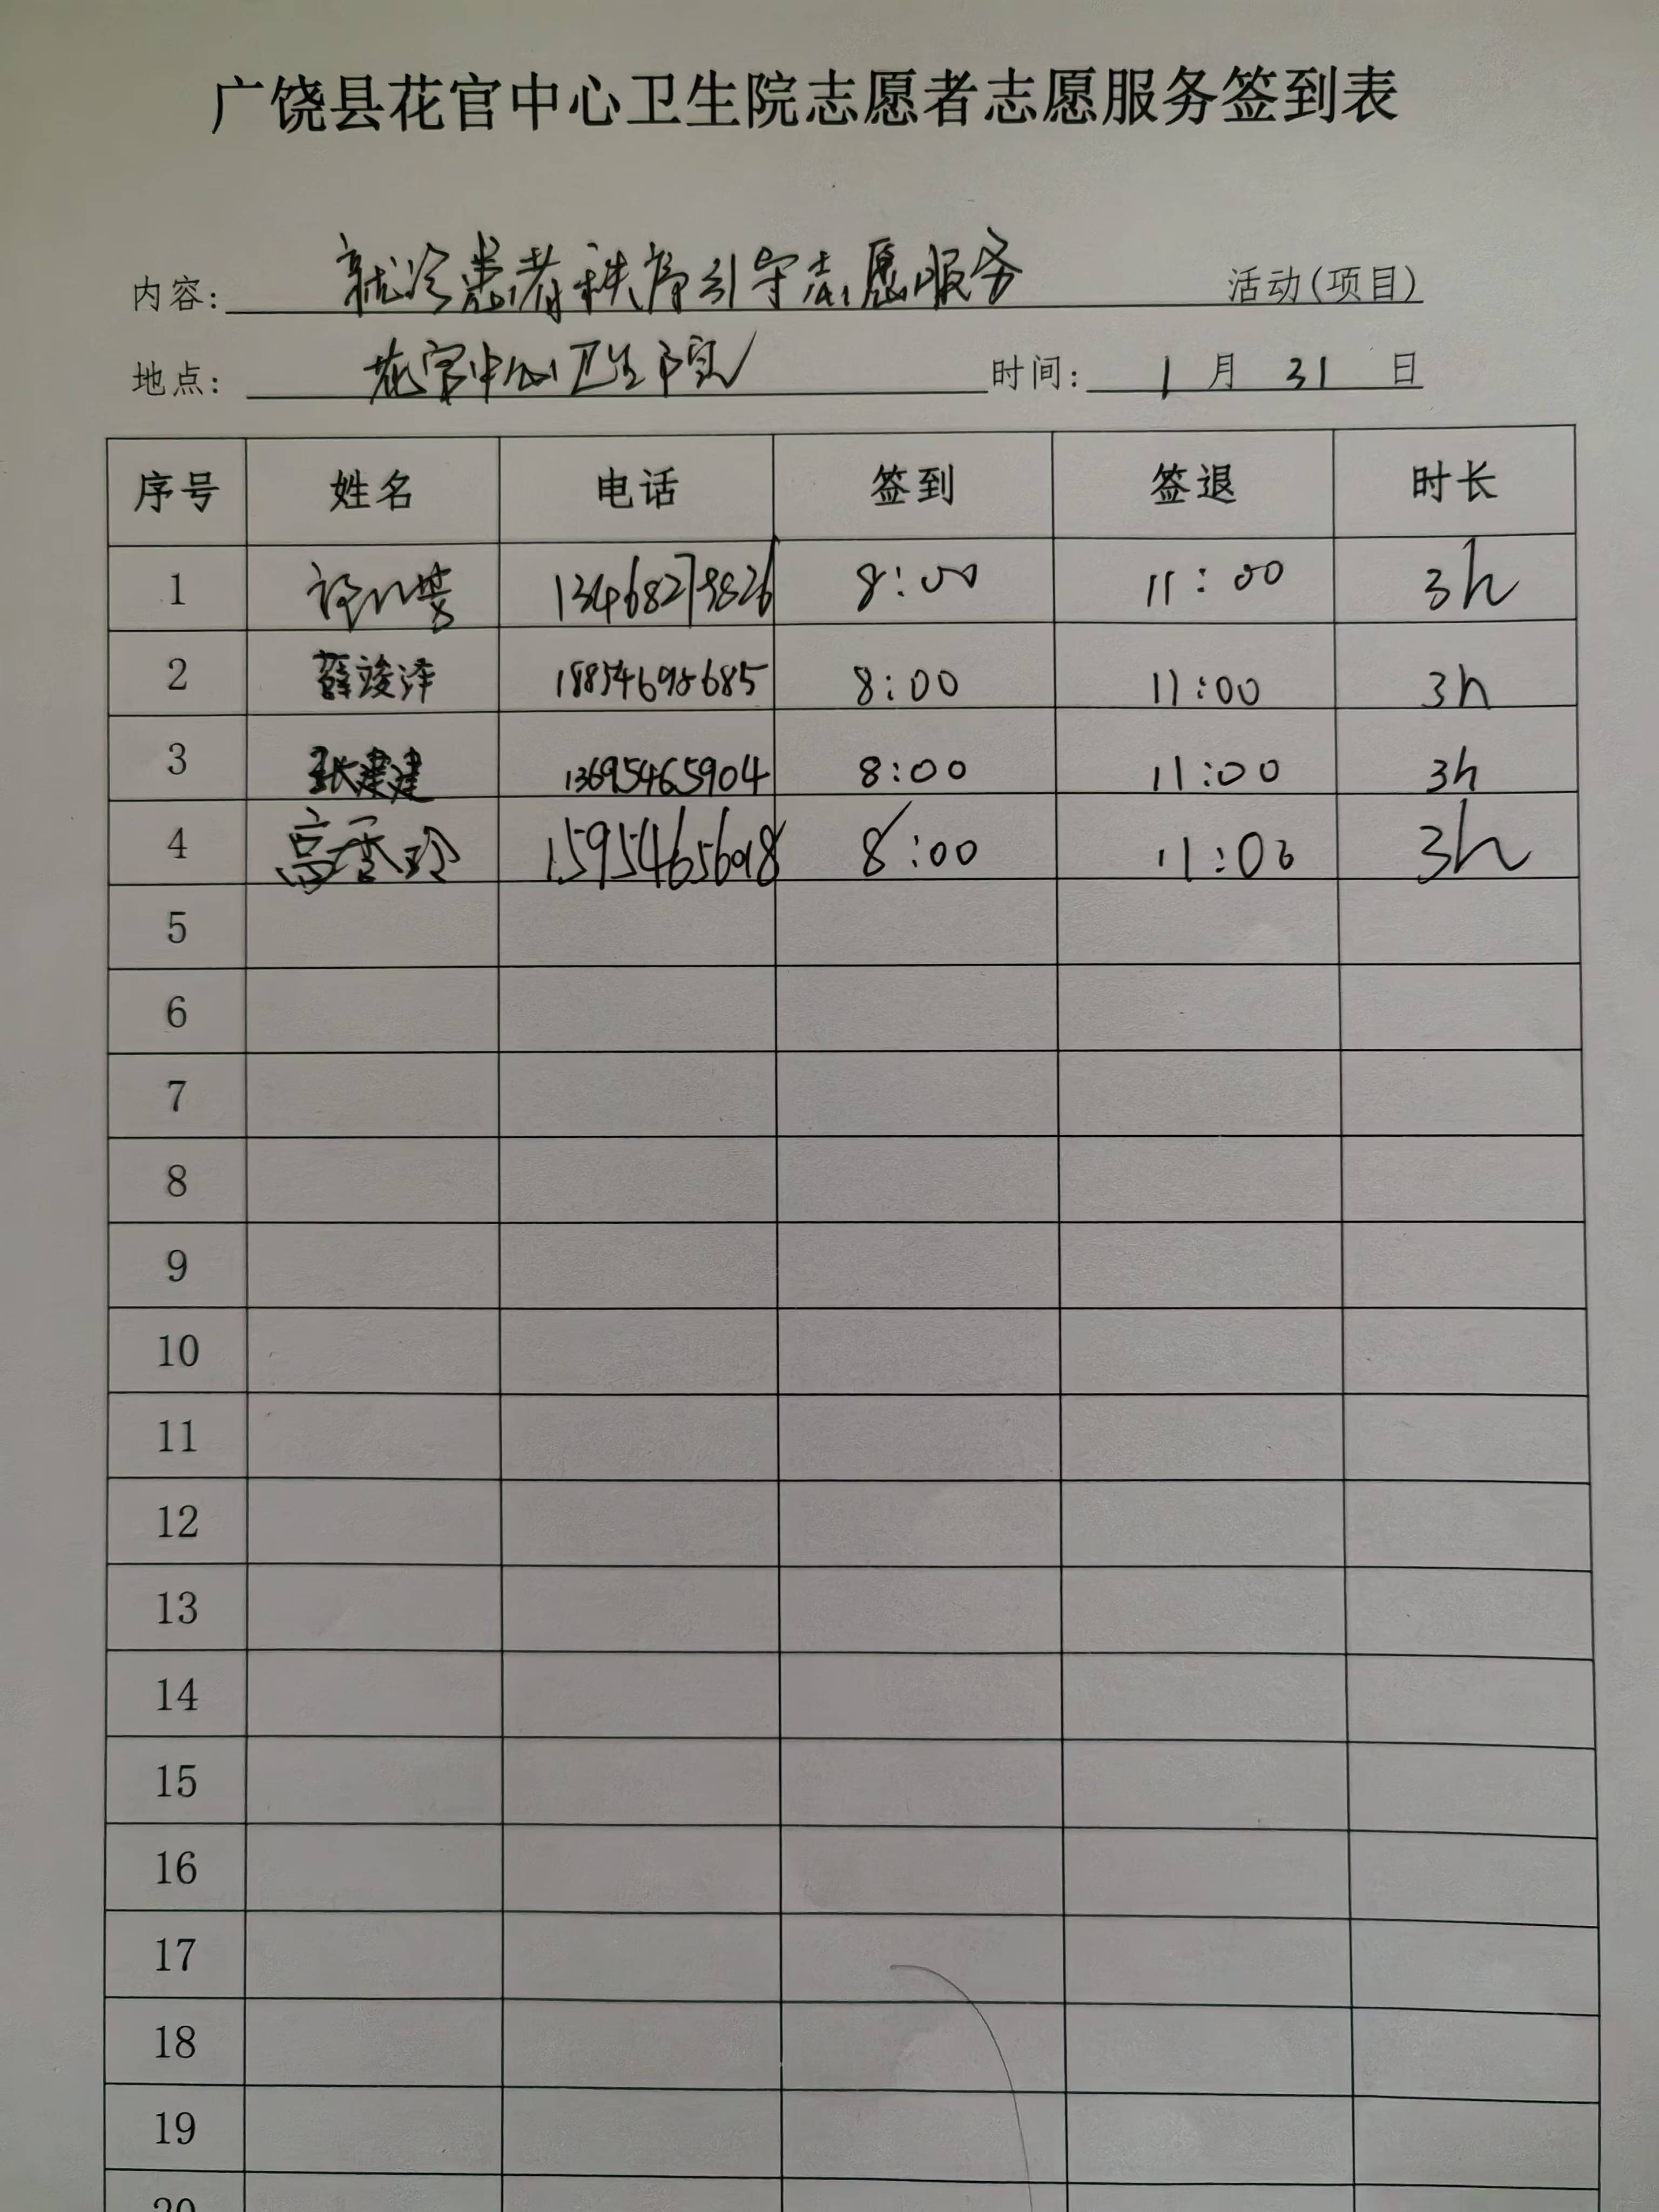 广饶县花官中心卫生院志愿者志愿服务签到表
内容: 就诊患者秩序引导志愿服务 活动(项目)
地点: 花官中心卫生院 时间: 1 月 31 日
序号 姓名 电话 签到 签退 时长
1 8:00 11:00 3h
2 薛浚泽 8:00 11:00 3h
3 张建建 13695465904 8:00 11:00 3h
4 高香玲 8:00 11:00 3h
5
6
7
8
9
10
11
12
13
14
15
16
17
18
19
20